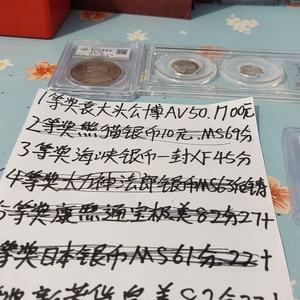 1等奖袁大头公博AV50.1700元
2等奖熊猫银币10元.MS69分
3等奖海峡银币一封XF45分
4等奖大万神法郎银币MS63
5等奖康熙通宝极美82分27+
等奖日本银币MS61分.22+